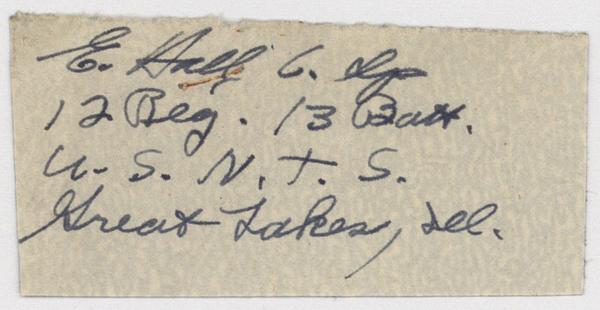 E. Hall, C. Sp
12 Reg. 13 Batt.
U. S. N. T. S.
Great Lakes, Ill.